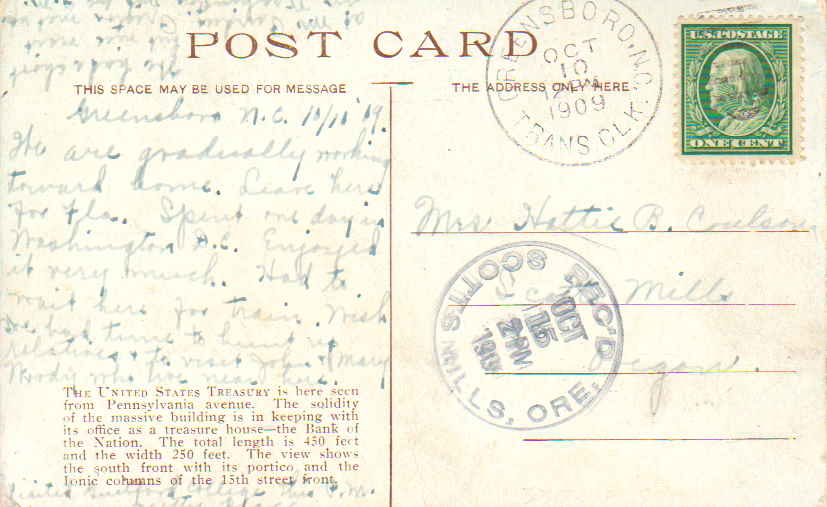 POST CARD
THIS SPACE MAY BE USED FOR MESSAGE
THE ADDRESS ONLY HERE
GREENSBORO, N.C.
OCT
10
1909
TRANS. CLK.
U.S. POSTAGE
ONE CENT
Greensboro N.C. 10/10 '09.
We are gradually working
toward home. Leave here
for Fla. Spent one day in
Washington D.C. Enjoyed
it very much. Had to
wait here for train. Wish
we had time to hunt up
relatives & to visit John & Mary
Woody who live near here
THE UNITED STATES TREASURY is here seen
from Pennsylvania avenue. The solidity
of the massive building is in keeping with
its office as a treasure house—the Bank of
the Nation. The total length is 450 feet
and the width 250 feet. The view shows
the south front with its portico and the
Ionic columns of the 15th street front.
Visited Guilford College this P.M.
Mrs Hattie B. Coulson
Scotts Mills
Oregon.
REC'D
OCT
15
2 PM
SCOTTS MILLS, ORE.